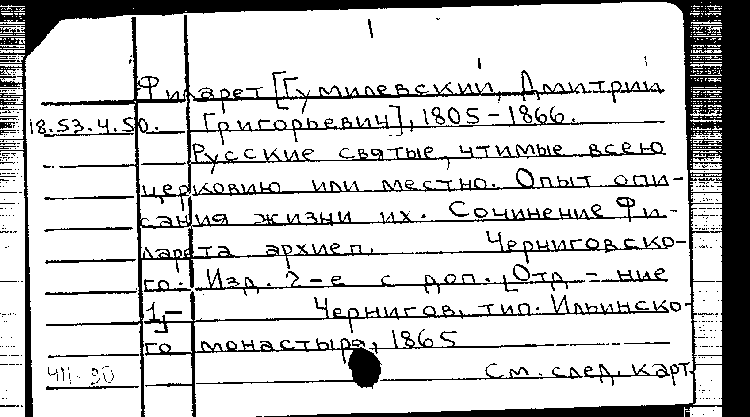 Филарет [Гумилевский, Дмитрий
18.53.4.50. Григорьевич], 1805-1866.
Русские святые, чтимые всею
церковию или местно. Опыт опи-
сания жизни их. Сочинение Фи-
ларета архиеп. Черниговско-
го. Изд. 2-е с доп. [Отд-ние
1,- Чернигов, тип. Ильинско-
го монастыря, 1865
См. след. карт.